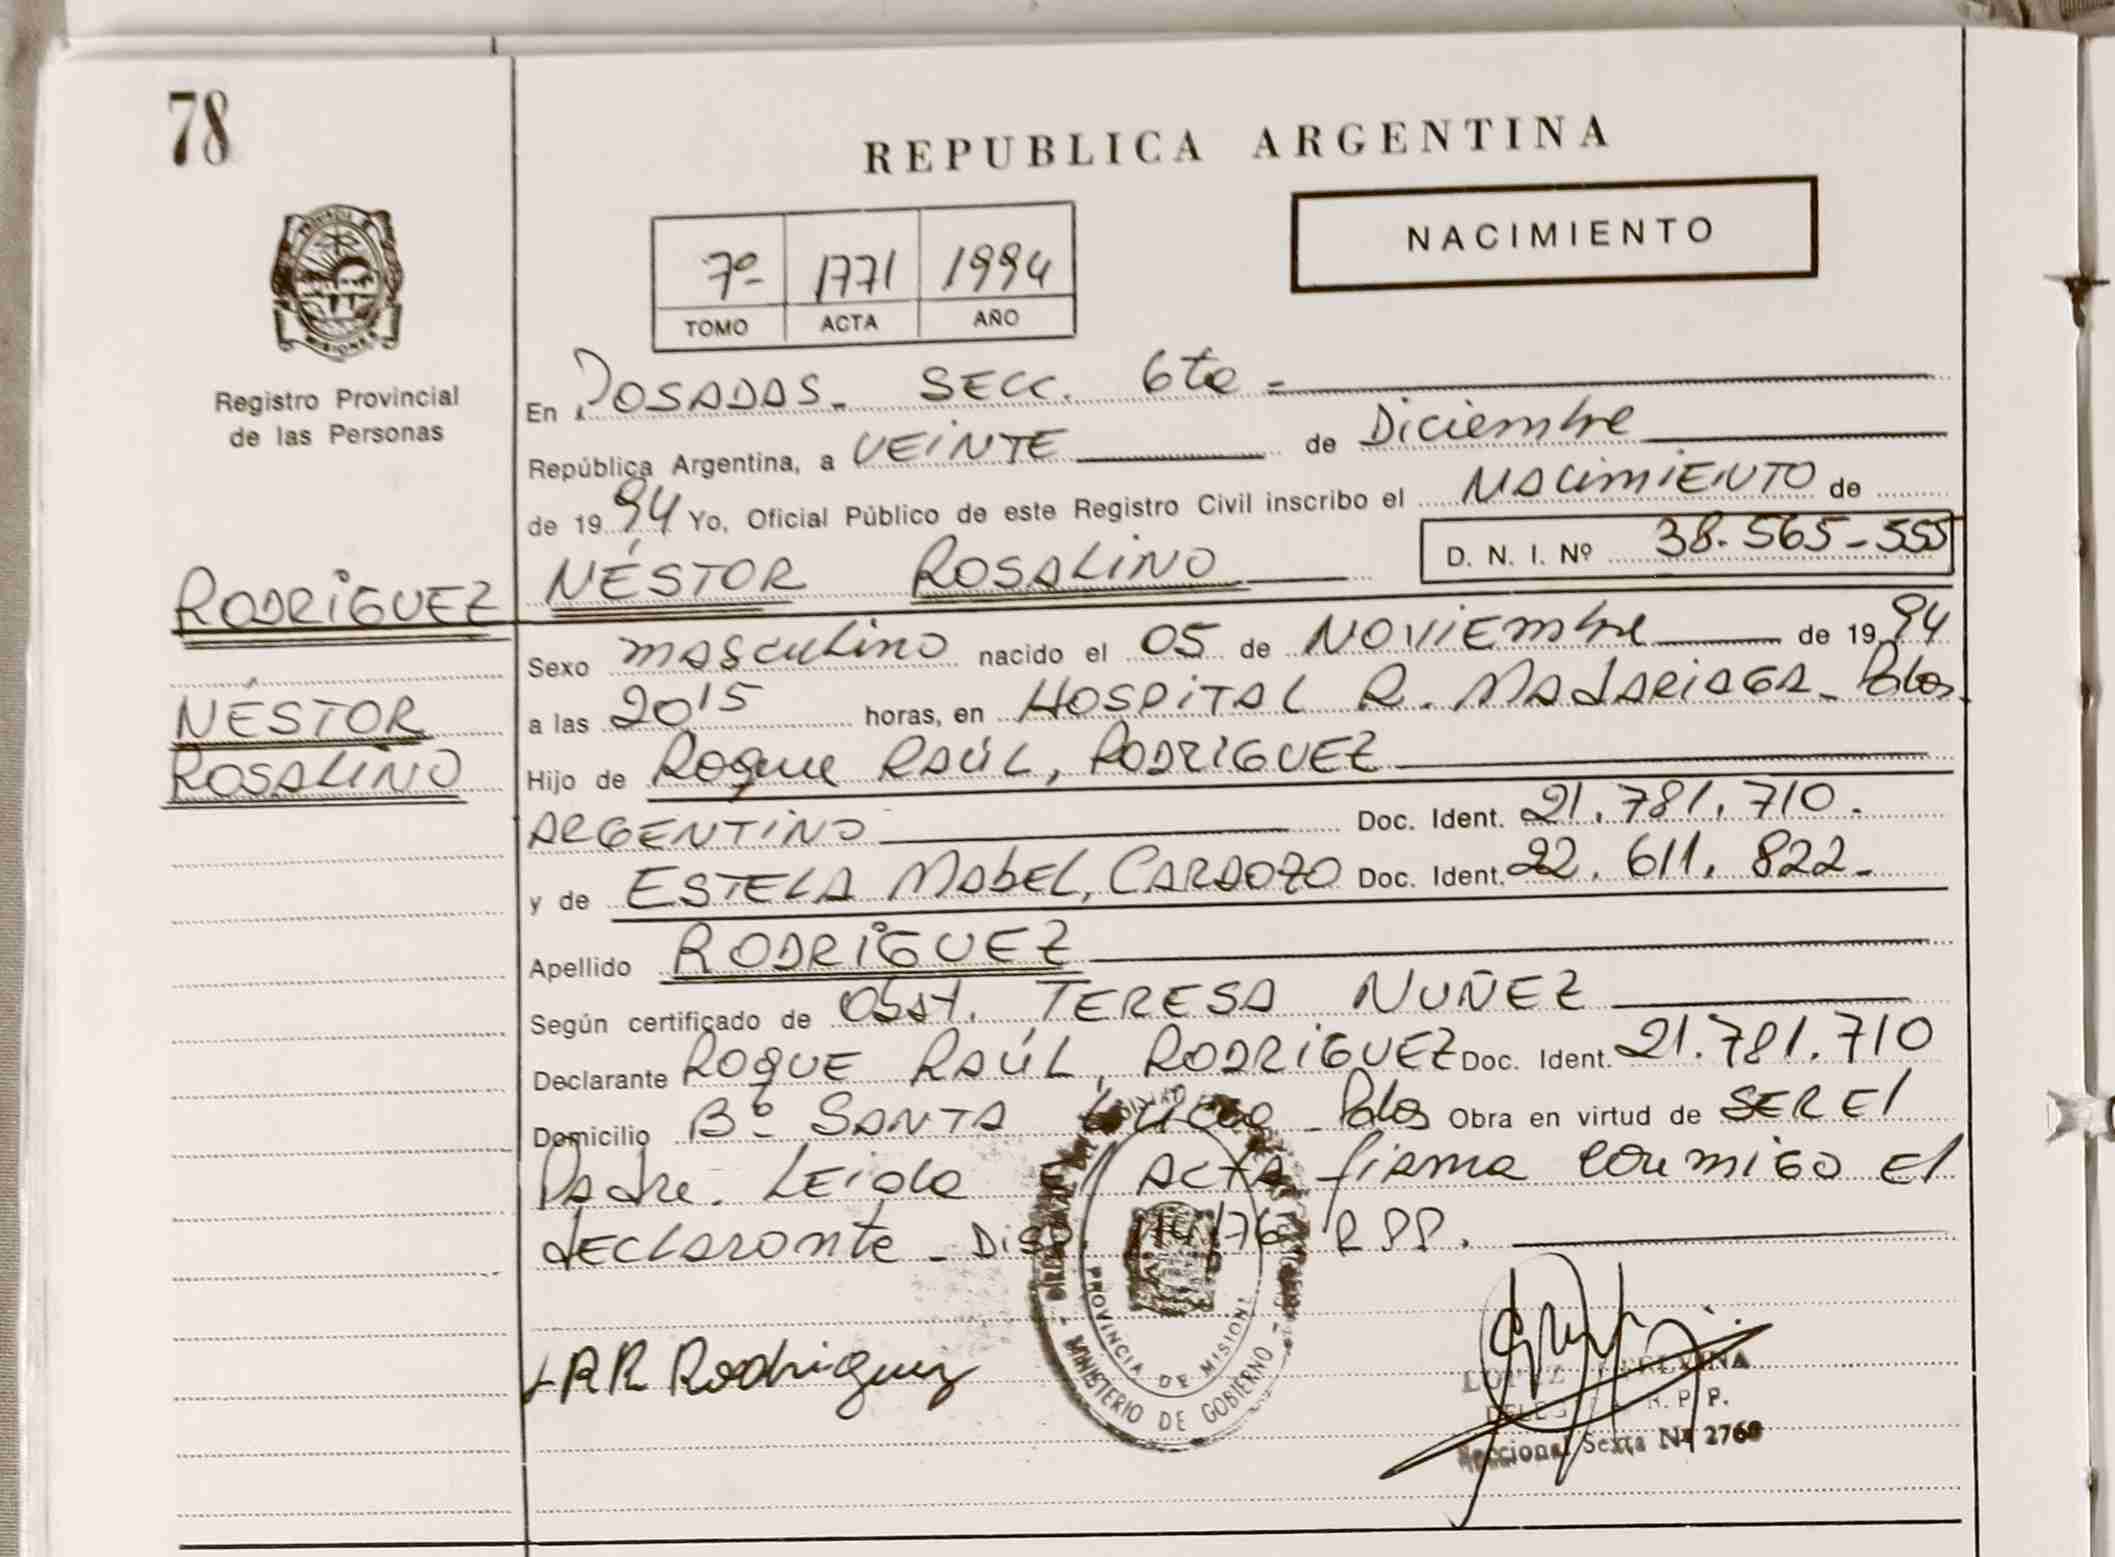 78
REPUBLICA ARGENTINA
NACIMIENTO
7º 1771 1994
TOMO ACTA AÑO
MISIONES
Registro Provincial
de las Personas
En POSADAS. SECC. 6ta
República Argentina, a VEINTE de Diciembre
de 1994 Yo, Oficial Público de este Registro Civil inscribo el NACIMIENTO de
RODRIGUEZ NÉSTOR ROSALINO D. N. I. Nº 38.565-555
NÉSTOR
ROSALINO
Sexo masculino nacido el 05 de NOVIEmbre de 1994
a las 2015 horas, en HOSPITAL R. MADARIAGA - Pdas.
Hijo de Roque RAÚL, RODRIGUEZ
ARGENTINO Doc. Ident. 21.781.710.
y de ESTELA MabEL, CARDOZO Doc. Ident. 22.611.822-
Apellido RODRIGUEZ
Según certificado de Obst. TERESA NUÑEZ
Declarante ROQUE RAÚL, RODRIGUEZ Doc. Ident. 21.781.710
Domicilio Bº SANTA - Pdas Obra en virtud de SER El
Padre. LEida El ACTA firma conmigo El
dECLARante - Disp. RPP.
PROVINCIA DE MISIONES
MINISTERIO DE GOBIERNO
RR Rodriguez
R. P. P.
Seccional Sexta Nº 2760